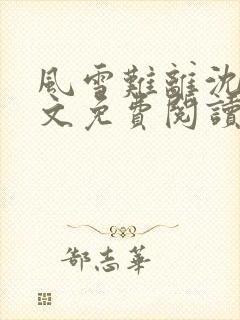 風雪難離沈
文免費閱讀
郜志華